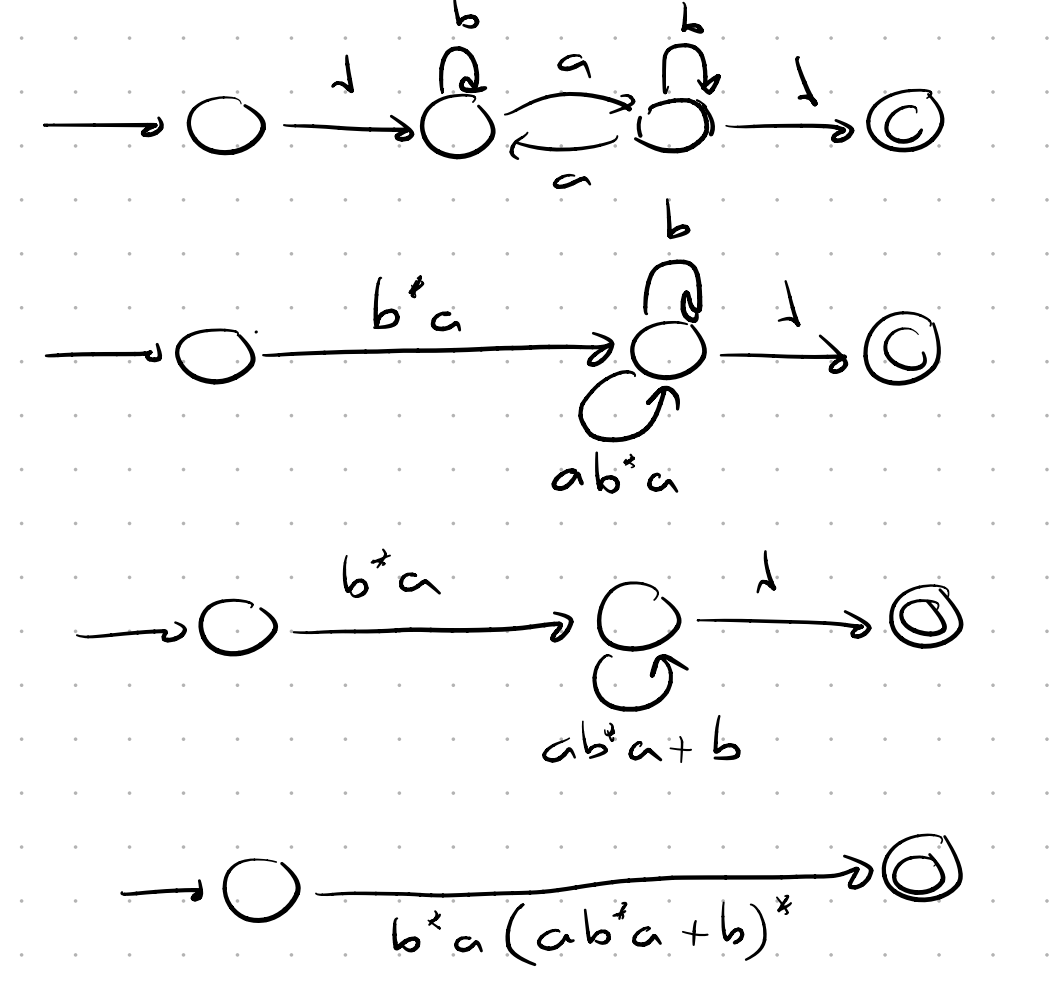 b b
λ a λ
a
b
b*a λ
ab*a
b*a λ
ab*a + b
b*a (ab*a + b)*